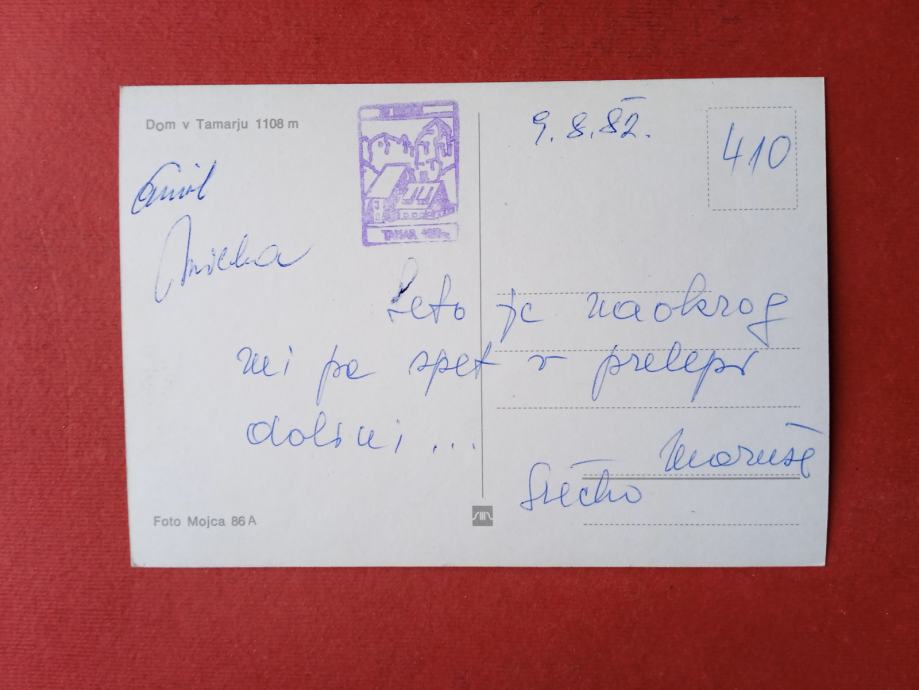 Dom v Tamarju 1108 m
9. 8. 82.
410
Emil
Anicka
Leto je naokrog
mi pa spet v prelepi
dolini ...
Maruša
Srečko
Foto Mojca 86A
TAMAR